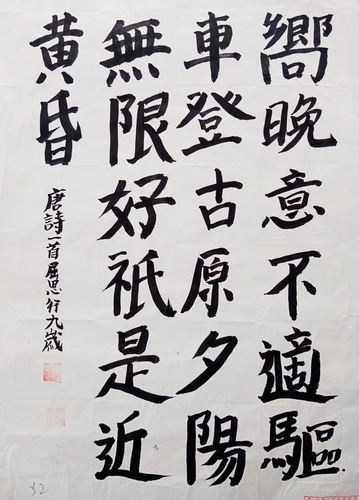 嚮晚意不適驅
車登古原夕陽
無限好祇是近
黄昏
唐詩一首屈思行九歲
52